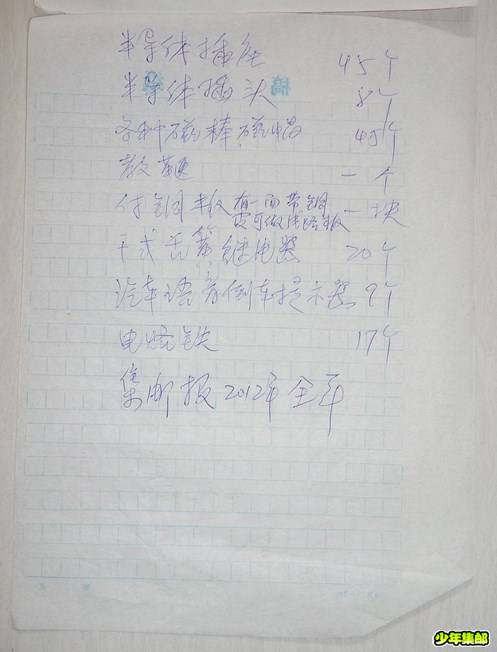 半导体插座 45个
半导体插头 8个
各种磁棒磁 45个
一个
付铜板 有一面带铜 一块
皮可做线路板
干式舌簧继电器 20个
汽车语音倒车提示器 9个
电烙铁 17个
集邮报2012年全年
少年集邮